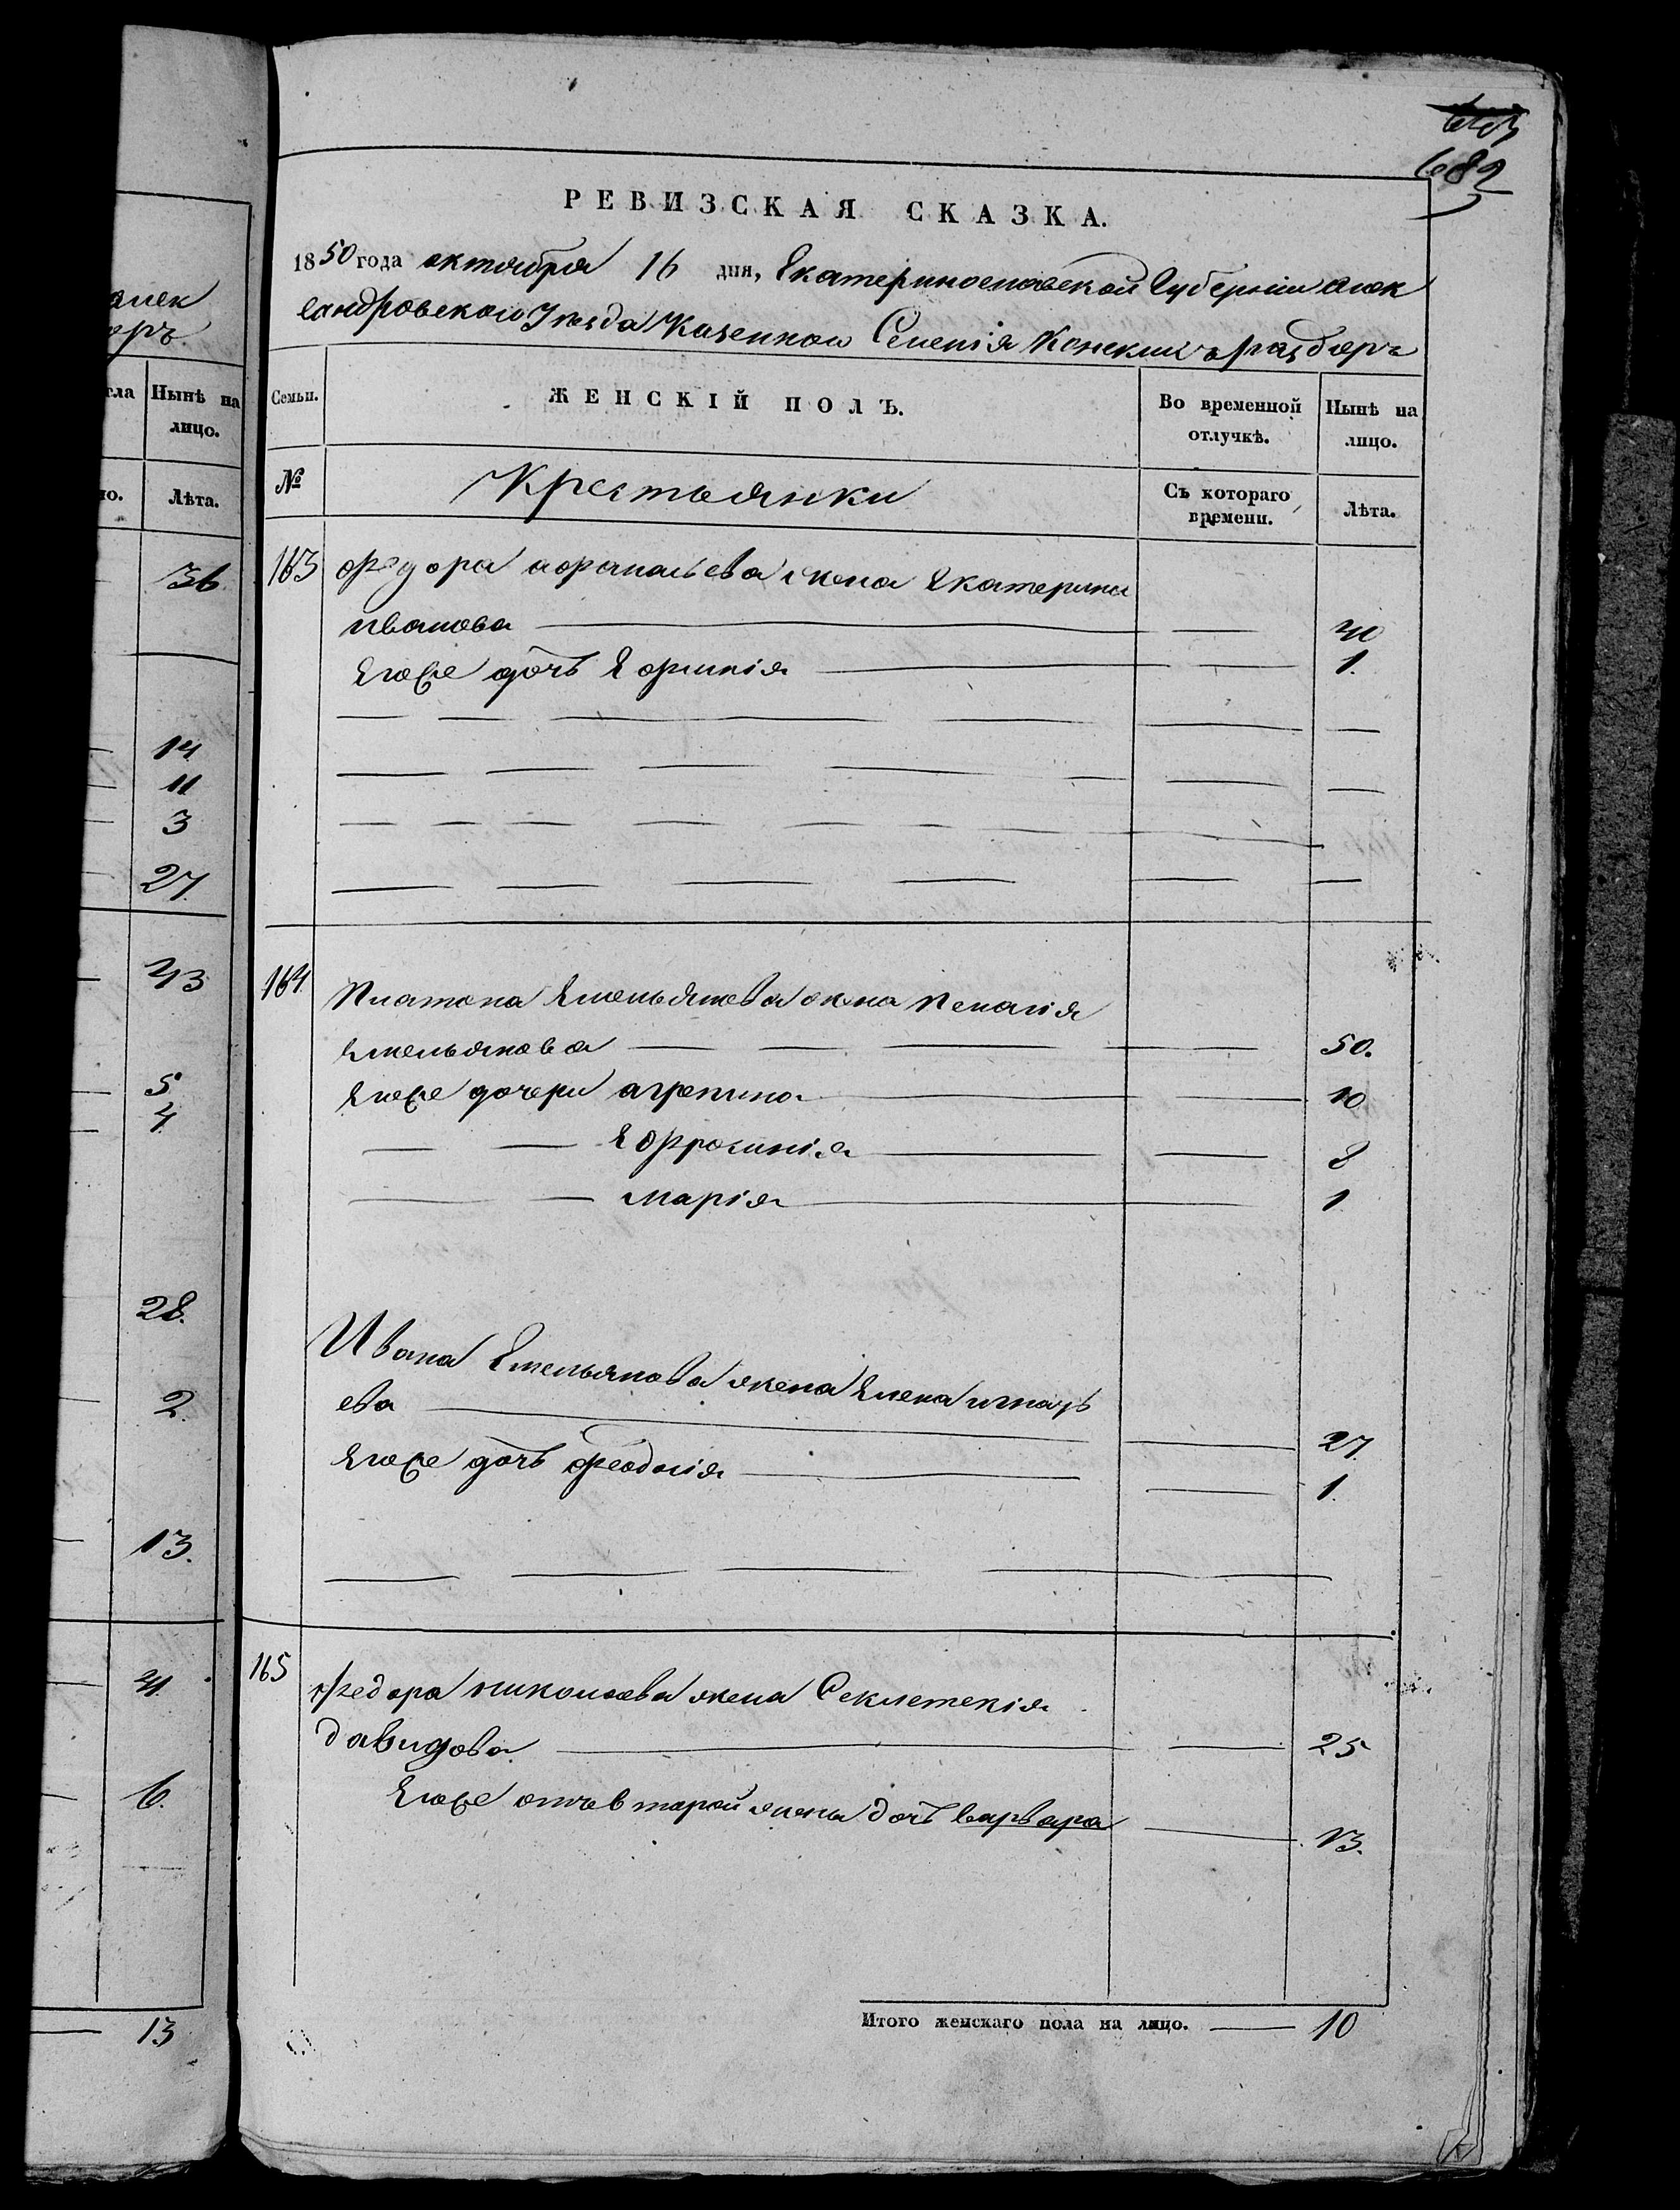 682
РЕВИЗСКАЯ СКАЗКА.
1850 года октября 16 дня, Екатеринославской Губерніи Алек
сандровскаго Уезда Казеннаго Селенія Конскихъ раздоръ
алек
оръ
Семьи.
ЖЕНСКІЙ ПОЛЪ.
Во временной отлучкѣ.
Нынѣ на лицо.
№
Крестьянки
Съ котораго времени.
Лѣта.
Нынѣ на лицо.
Лѣта.
163 Федора афанасьева жена Екатерина
иванова 40
Его же дочь Ефимія 1.
164 Платона Емельянова жена Пелагія
Емельянова 50.
Его же дочери агрепина 10
Ефросинія 8
марія 1
Ивана Емельянова жена Елена игнать
ева 27.
Его же дочь феодосія 1.
165 Федора николаева жена Секлетекія
давидова 25
Его же отъ второй жены дочь варвара 13.
Итого женскаго пола на лицо. 10
36
14
11
3
27.
43
5
4
28.
2
13.
4.
6.
13